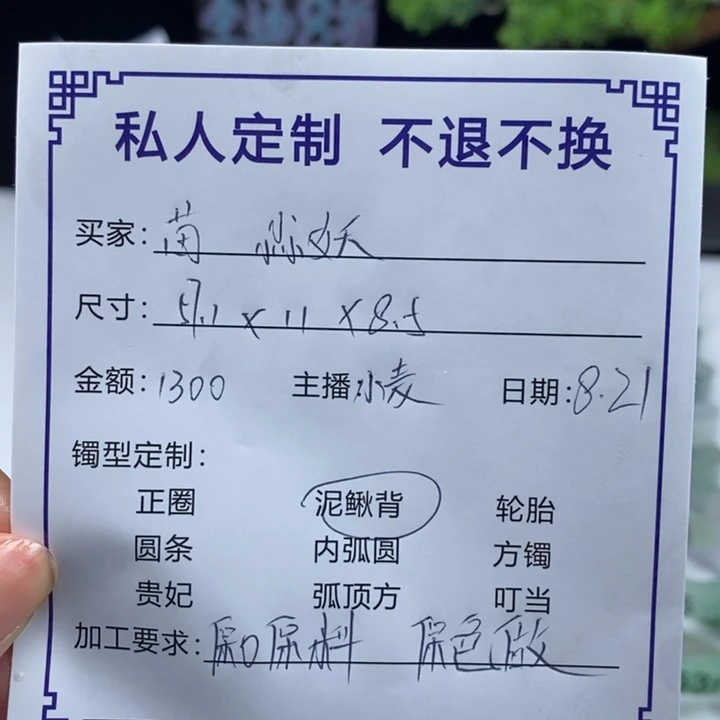 私人定制 不退不换
买家: 菌
尺寸: 57.1 x 11 x 8.5
金额: 1300 主播 小麦 日期: 8.21
镯型定制:
正圈 泥鳅背 轮胎
圆条 内弧圆 方镯
贵妃 弧顶方 叮当
加工要求: 保料 保色做